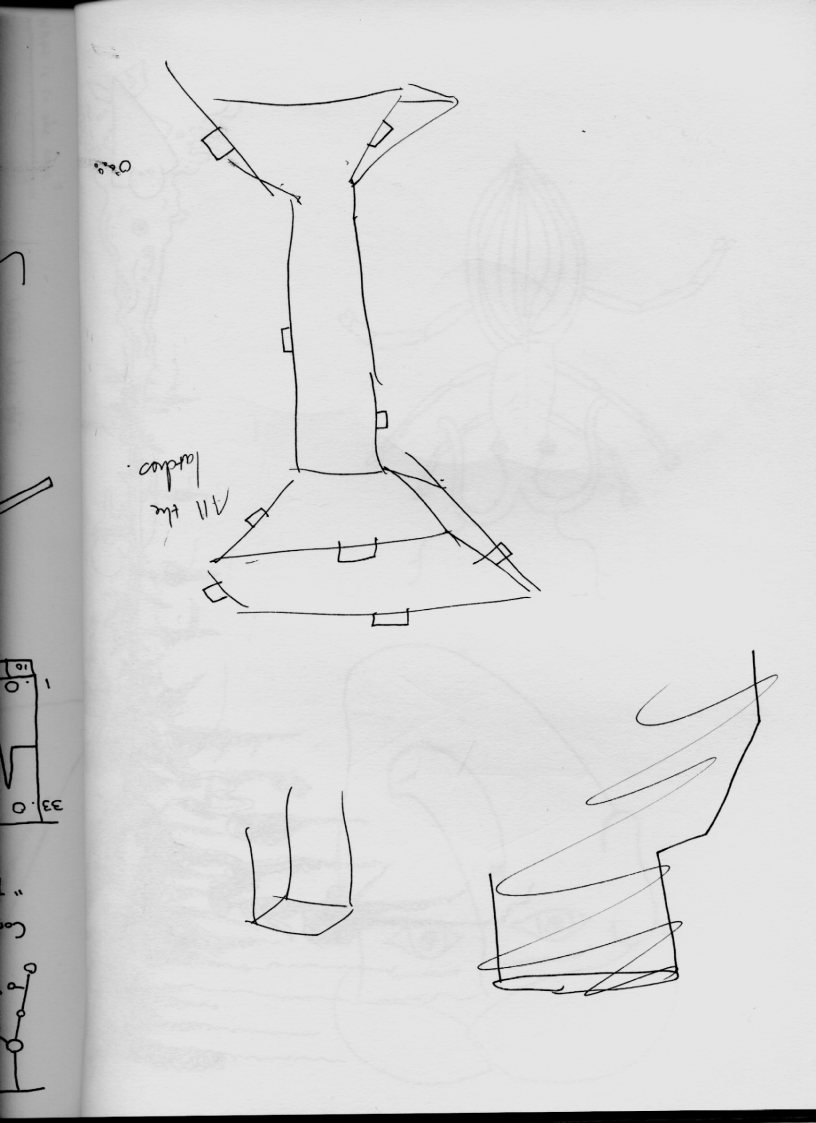 All the
latches.
Co
"
33
1
10